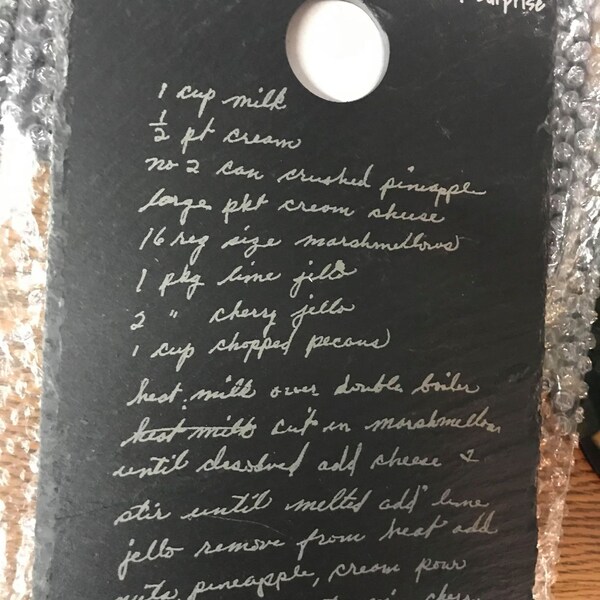 surprise
1 cup milk
1/2 pt cream
no 2 can crushed pineapple
large pkt cream cheese
16 reg size marshmellows
1 pkg lime jello
2 " cherry jello
1 cup chopped pecans
heat milk over double boiler
heat milk cut in marshmellows
until desolved add cheese &
stir until melted add lime
jello remove from heat add
nuts, pineapple, cream pour
cherry